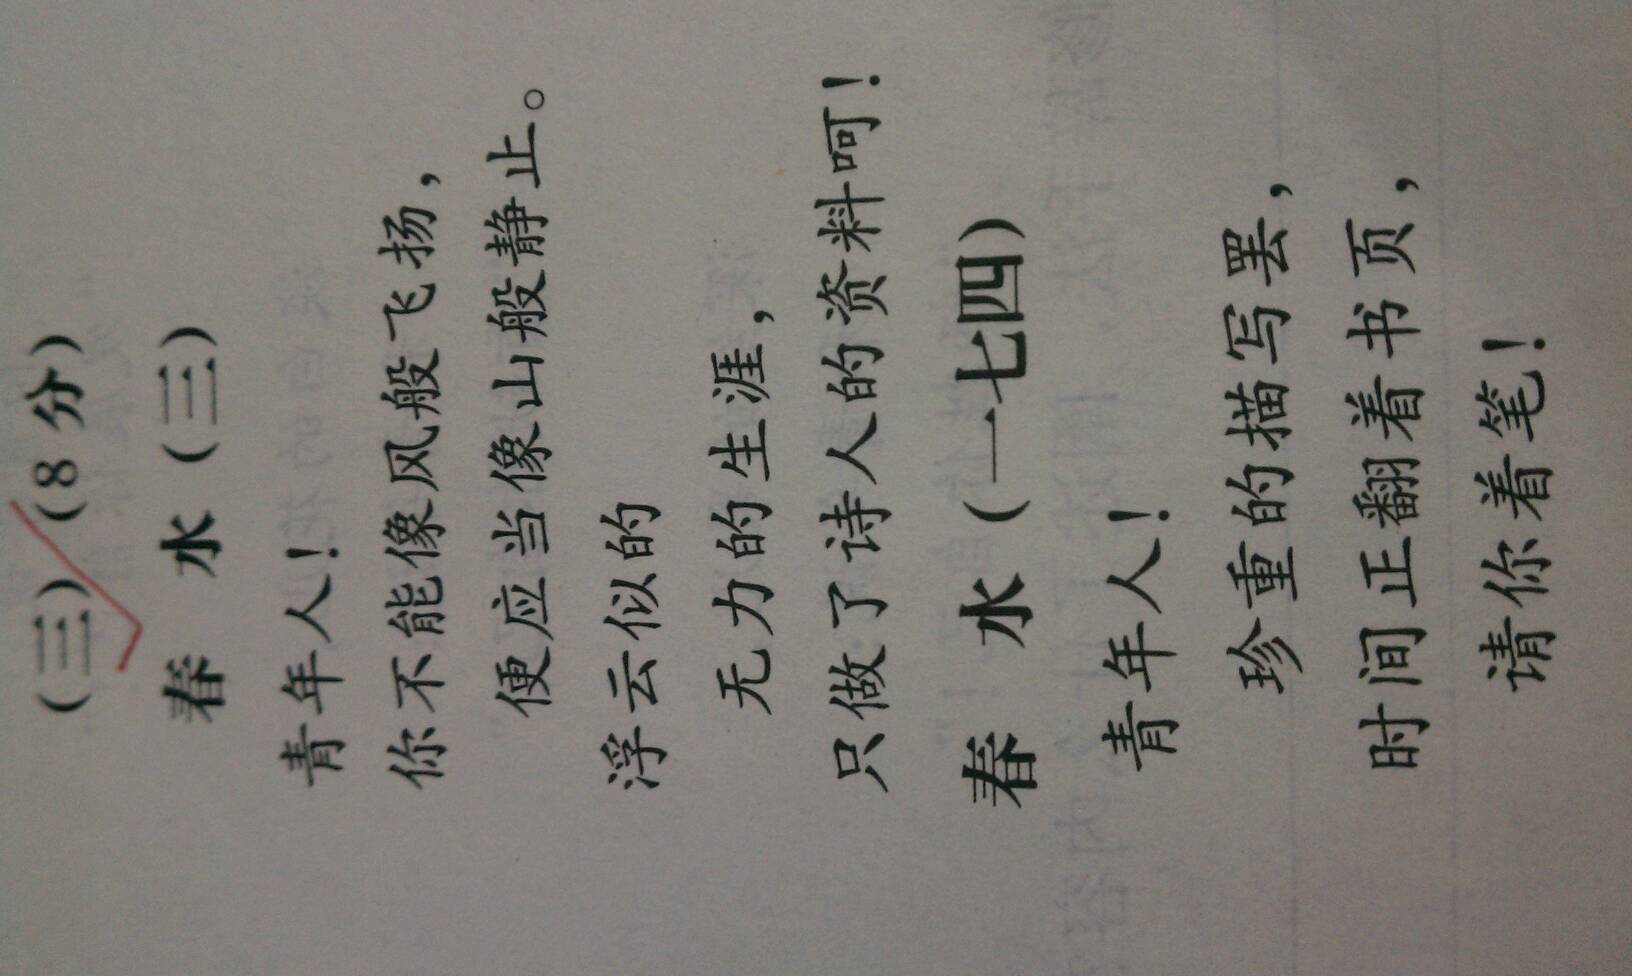 (三)(8分)
春 水(三)
青年人!
你不能像风般飞扬,
便应当像山般静止。
浮云似的
无力的生涯,
只做了诗人的资料呵!
春 水(一七四)
青年人!
珍重的描写罢,
时间正翻着书页,
请你着笔!